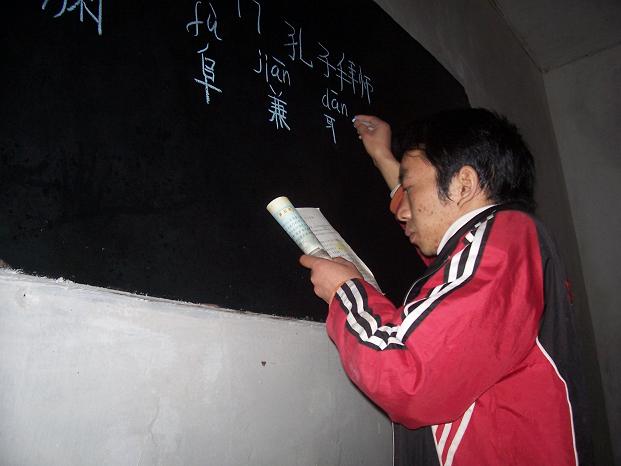 17 孔子拜师
fù jiān dān
阜 兼 耳